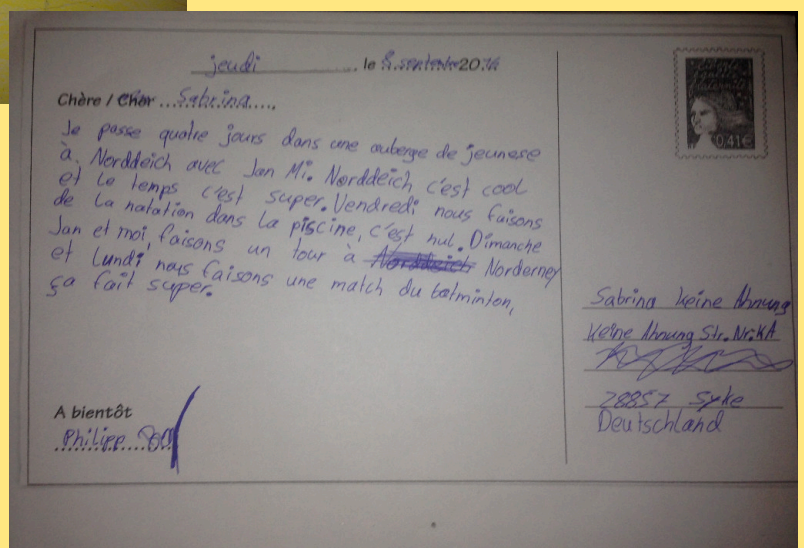 jeudi, le 8 septembre 20
Chère / Cher Sabrina,
Je passe quatre jours dans une auberge de jeunese
à Norddeich avec Jan Mi. Norddeich c'est cool
et le temps c'est super. Vendredi nous faisons
de la natation dans la piscine, c'est nul. Dimanche
Jan et moi, faisons un tour à Norddeich Norderney
et Lundi nous faisons une match du batminton,
ça fait super.
A bientôt
Philipp
0,41€
Sabrina keine Ahnung
Keine Ahnung Str. Nr. KA
28857 Syke
Deutschland